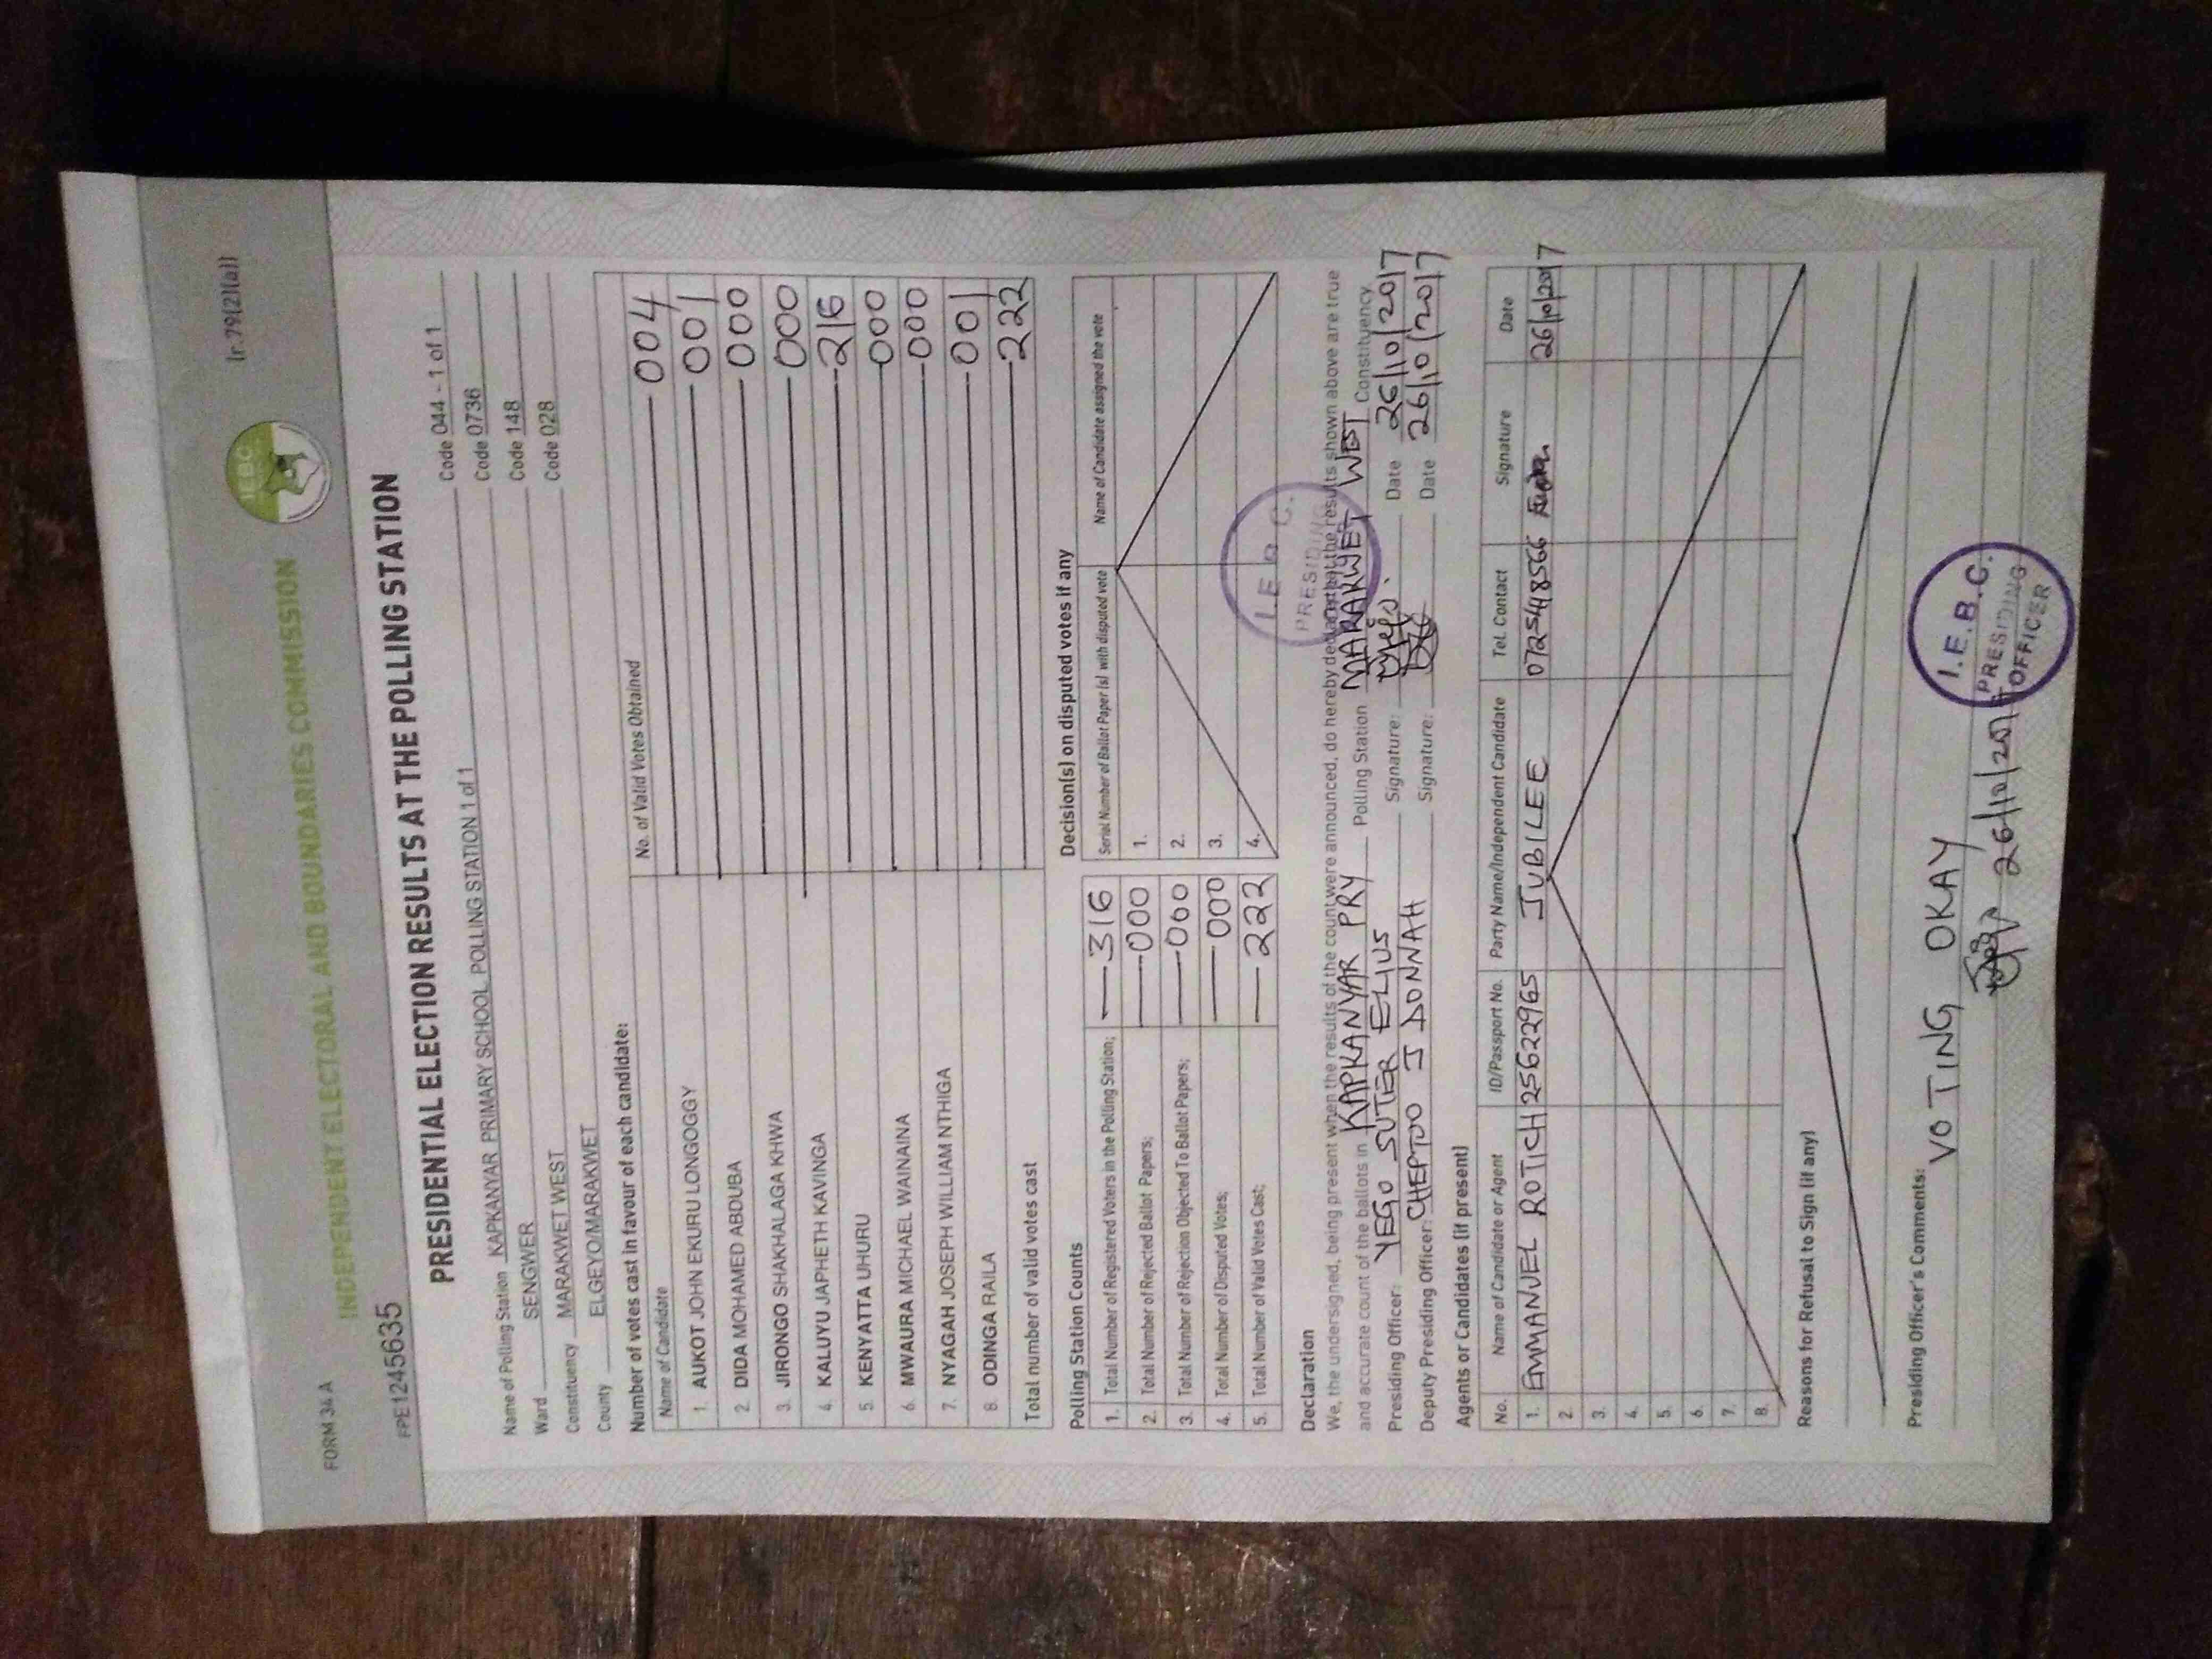 FORM 34 A
[r.79(2)(a)]
IEBC
INDEPENDENT ELECTORAL AND BOUNDARIES COMMISSION
FPE1245635
PRESIDENTIAL ELECTION RESULTS AT THE POLLING STATION
Name of Polling Station KAPKANYAR PRIMARY SCHOOL POLLING STATION 1 of 1 Code 044 - 1 of 1
Ward SENGWER Code 0736
Constituency MARAKWET WEST Code 148
County ELGEYO/MARAKWET Code 028
Number of votes cast in favour of each candidate:
Name of Candidate No. of Valid Votes Obtained
1. AUKOT JOHN EKURU LONGOGGY 004
2. DIDA MOHAMED ABDUBA 001
3. JIRONGO SHAKHALAGA KHWA 000
4. KALUYU JAPHETH KAVINGA 000
5. KENYATTA UHURU 216
6. MWAURA MICHAEL WAINAINA 000
7. NYAGAH JOSEPH WILLIAM NTHIGA 000
8. ODINGA RAILA 001
Total number of valid votes cast 222
Polling Station Counts
1. Total Number of Registered Voters in the Polling Station; 316
2. Total Number of Rejected Ballot Papers; 000
3. Total Number of Rejection Objected To Ballot Papers; 000
4. Total Number of Disputed Votes; 000
5. Total Number of Valid Votes Cast; 222
Decision(s) on disputed votes if any
Serial Number of Ballot Paper (s) with disputed vote Name of Candidate assigned the vote
1.
2.
3.
4.
I.E.B.C.
PRESIDING
Declaration
We, the undersigned, being present when the results of the count were announced, do hereby declare that the results shown above are true
and accurate count of the ballots in KAPKANYAR PRY Polling Station MARAKWET WEST Constituency
Presiding Officer: YEGO SUTER ELIUS Signature: Date 26/10/2017
Deputy Presiding Officer: CHEPTOO J DONNAH Signature: Date 26/10/2017
Agents or Candidates (if present)
No. Name of Candidate or Agent ID/Passport No. Party Name/Independent Candidate Tel. Contact Signature Date
1. EMMANUEL ROTICH 25622965 JUBILEE 0725448566 26/10/2017
2.
3.
4.
5.
6.
7.
8.
Reasons for Refusal to Sign (if any)
Presiding Officer's Comments:
VOTING OKAY
26/10/2017
I.E.B.C.
PRESIDING
OFFICER